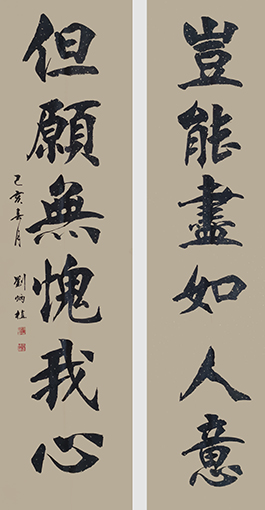 豈能盡如人意
但願無愧我心
己亥春月
劉炳桂